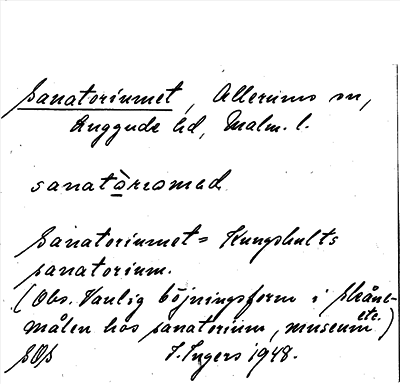 Sanatoriumet, Allerums sn,
Luggude hd, Malm. l.
sanatò̱rıomad
Sanatoriumet = Kungshults
sanatorium.
(Obs. Vanlig böjningsform i skåne-
målen hos sanatorium, museum etc.)
SOS I. Ingers 1948.